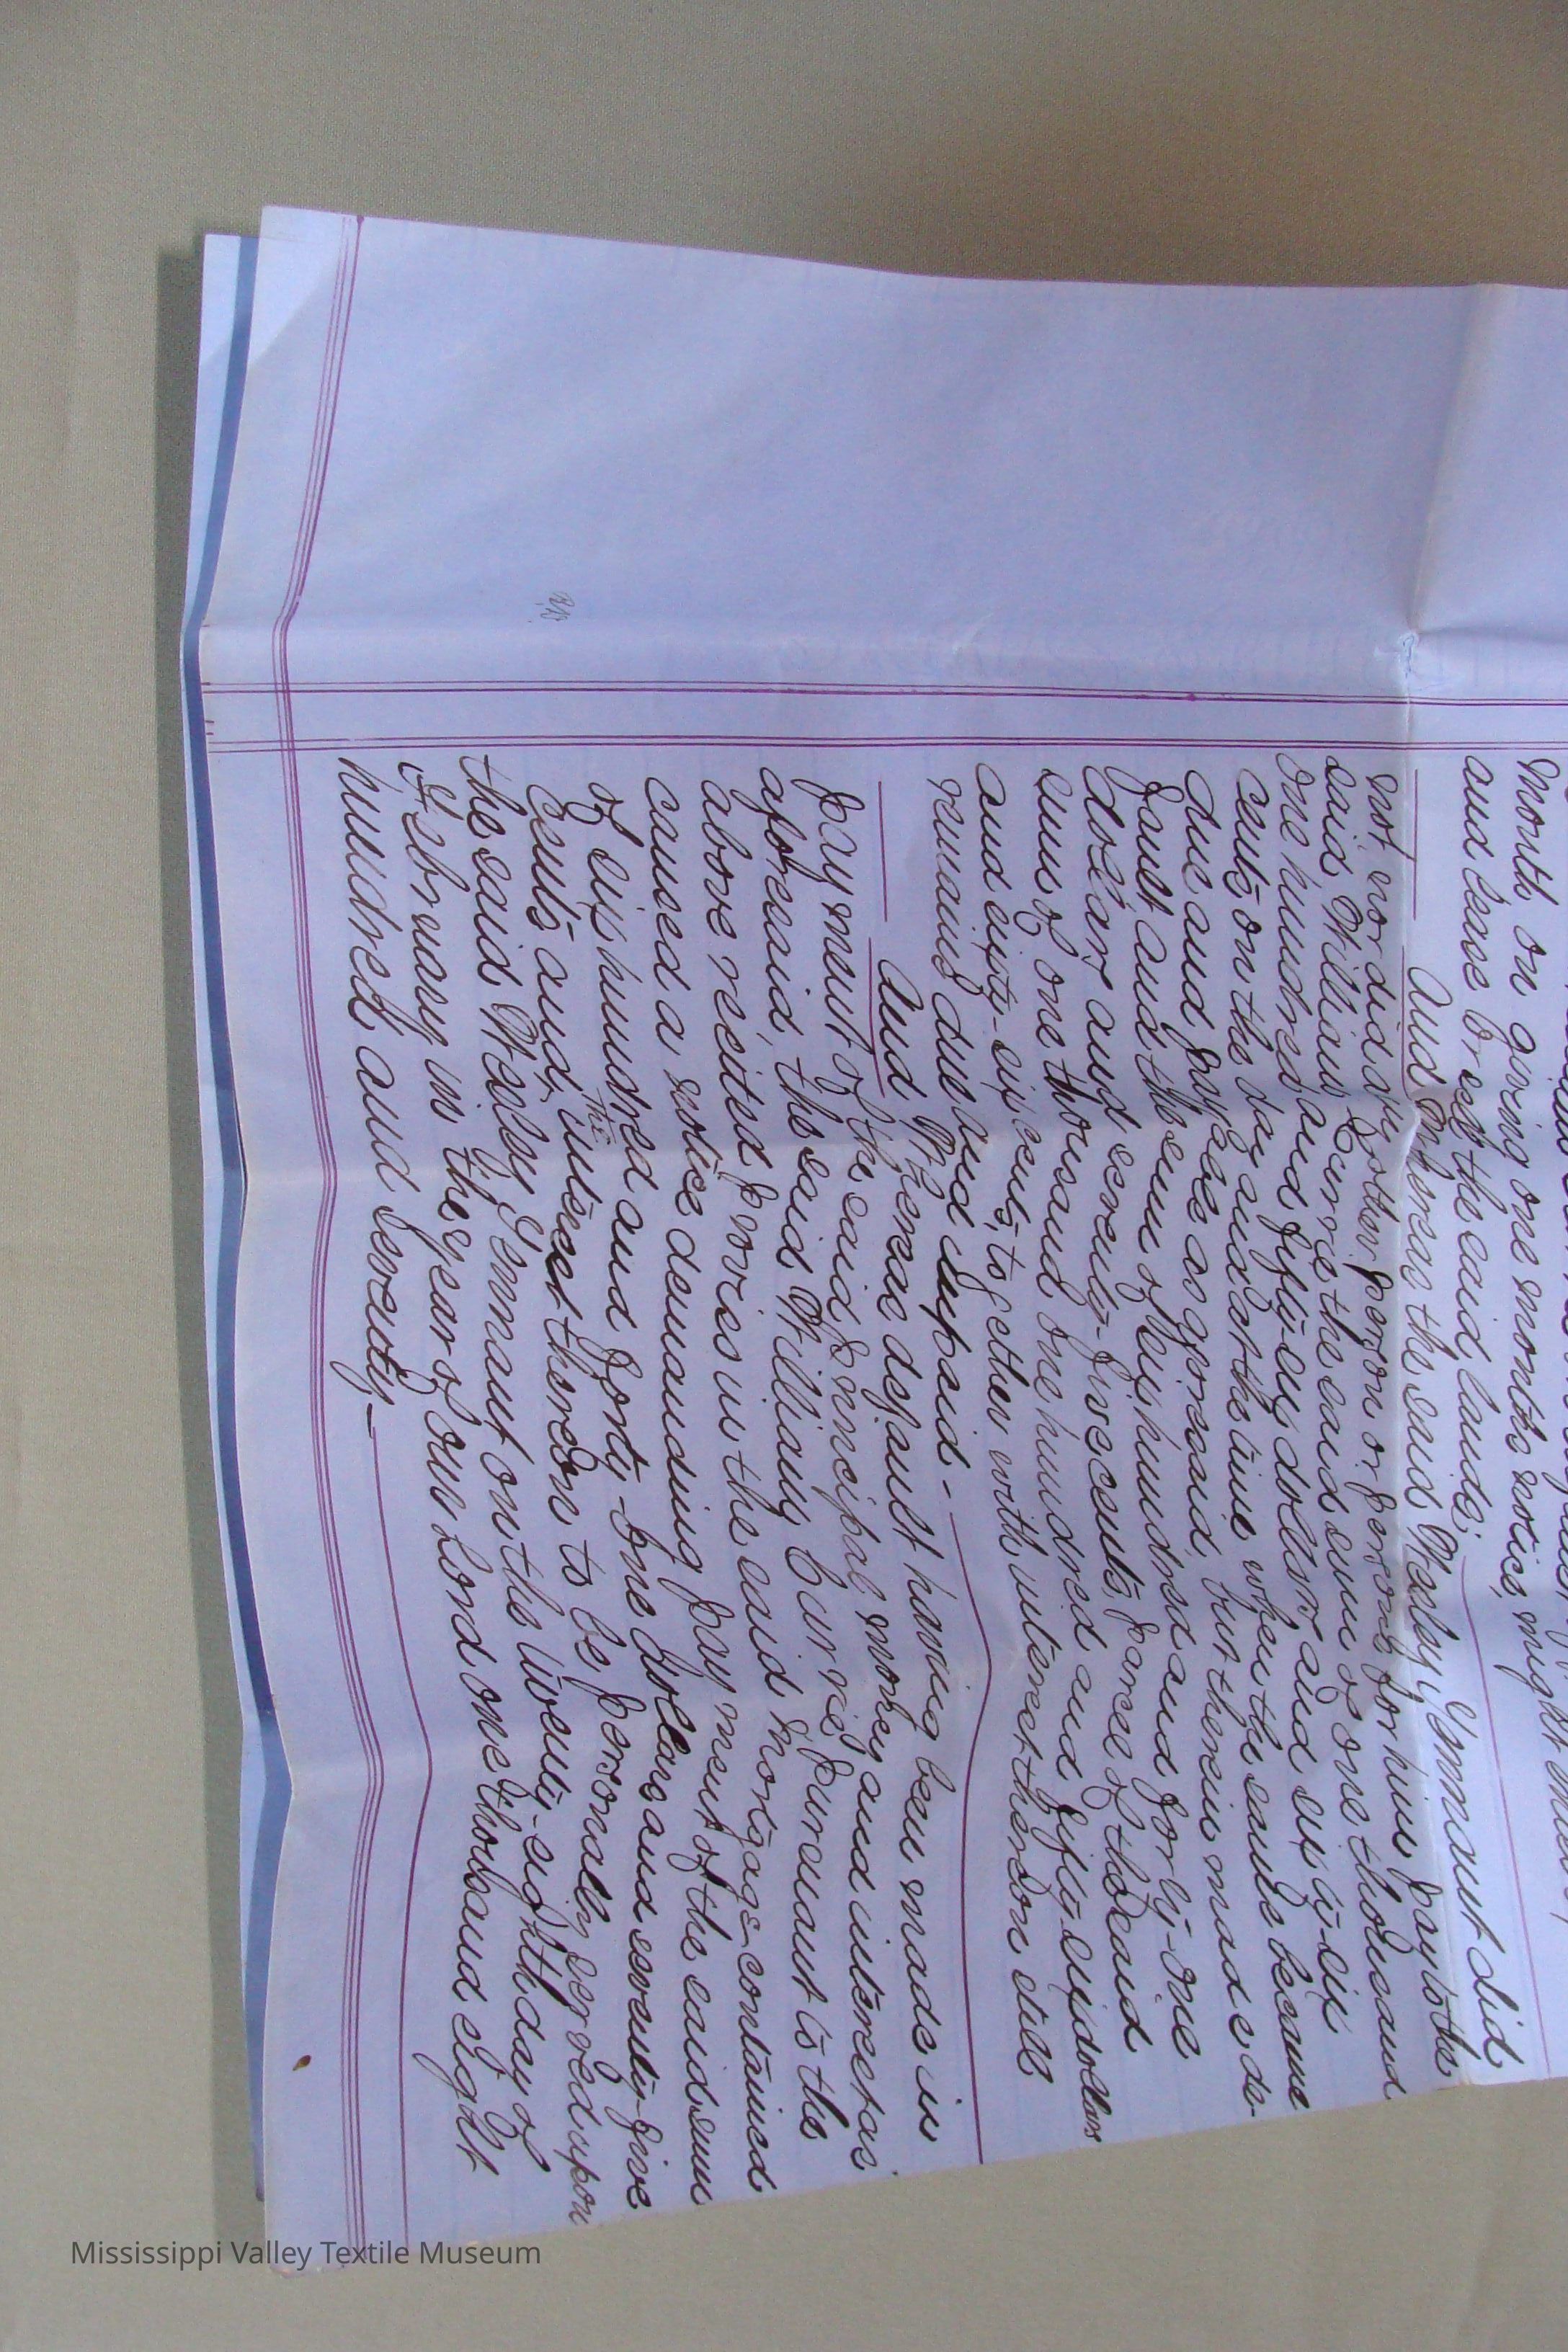 month on giving one month's notice, might
and lease or sell the said lands;
And Whereas the said Wesley Yemnant did
not, nor did any other person or persons for him pay to the
said William Currie the said sum of one thousand
one hundred and fifty-six dollars and sixty-six
cents on the day and at the time when the same became
due and payable as aforesaid, but therein made de-
fault and the sum of six hundred and forty-one
dollars and seventy-five cents, parcel of the said
sum of one thousand one hundred and fifty-six dollars
and sixty-six cents, together with interest thereon still
remains due and unpaid -
And Whereas default having been made in
payment of the said principal money and interest as
aforesaid, the said William Currie pursuant to the
above recited proviso in the said mortgage contained
caused a notice demanding payment of the said sum
of six hundred and forty-one dollars and seventy-five
cents and ^the interest thereon to be personally served upon
the said Wesley Yemnant on the twenty-eighth day of
February in the year of our Lord one thousand eight
hundred and seventy -
Mississippi Valley Textile Museum